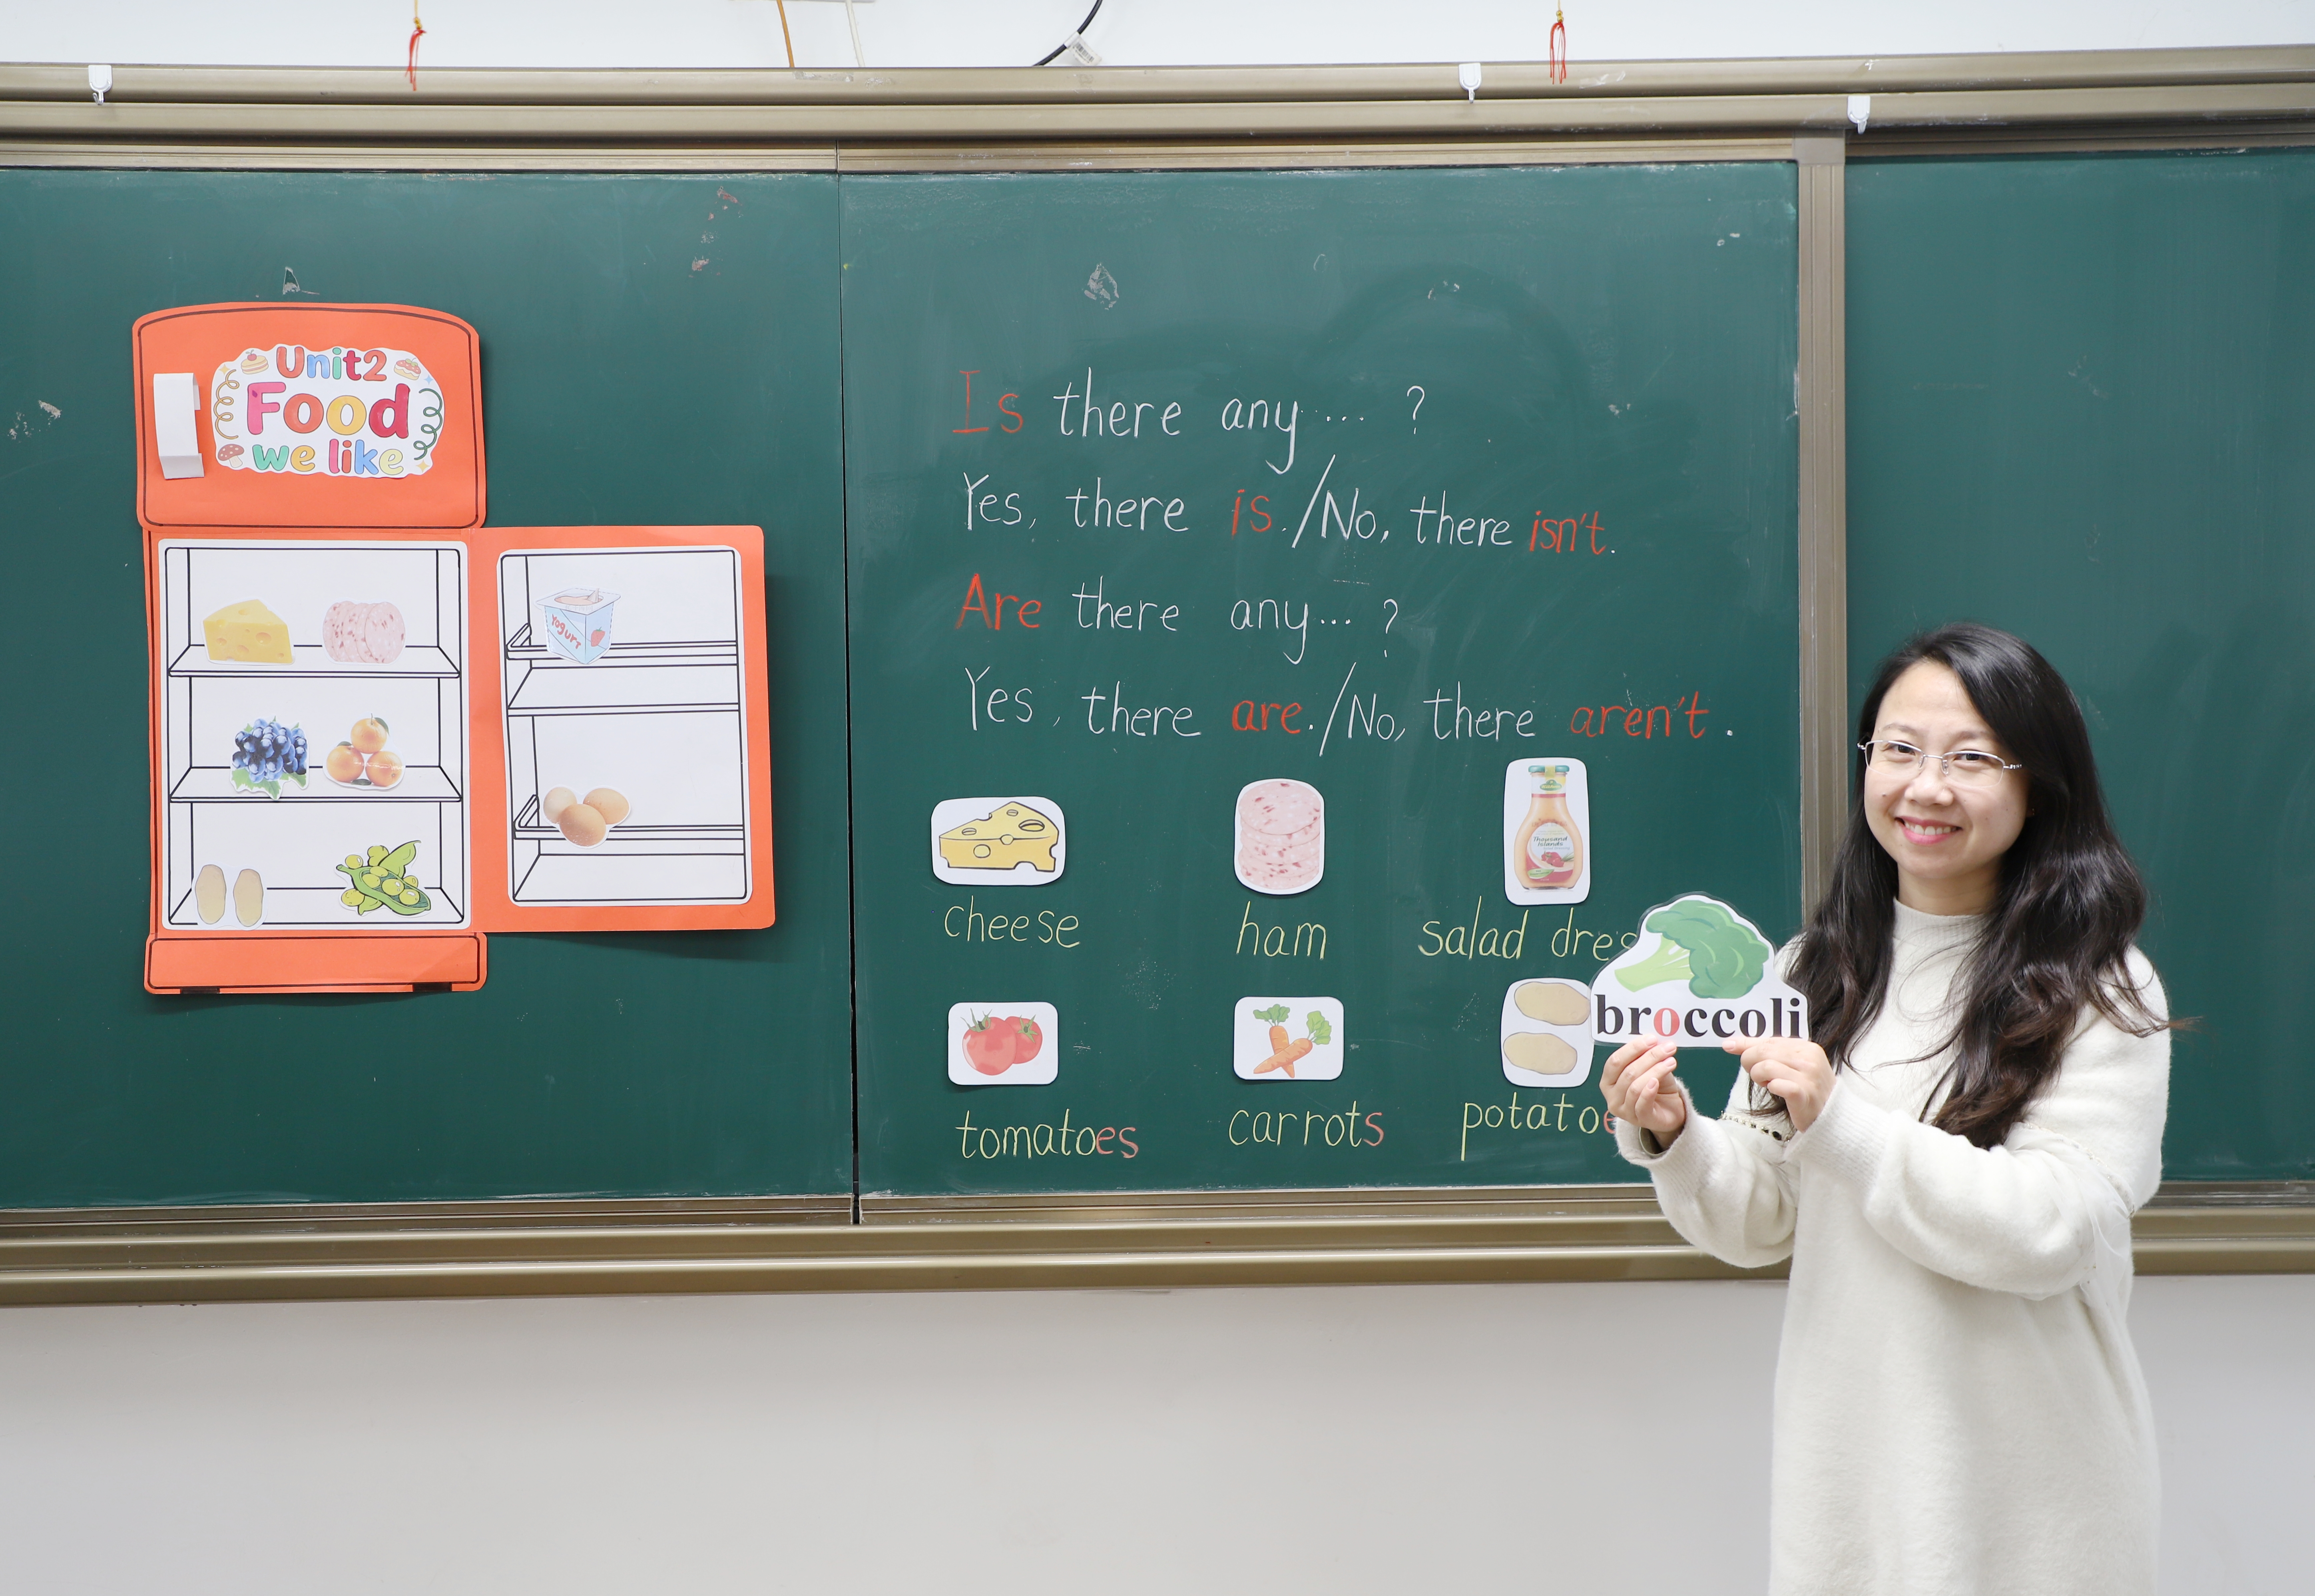 Unit2
Food
we like
Yogurt
Is there any... ?
Yes, there is./No, there isn't.
Are there any... ?
Yes, there are./No, there aren't.
Thousand
Islands
cheese ham salad
broccoli
tomatoes carrots